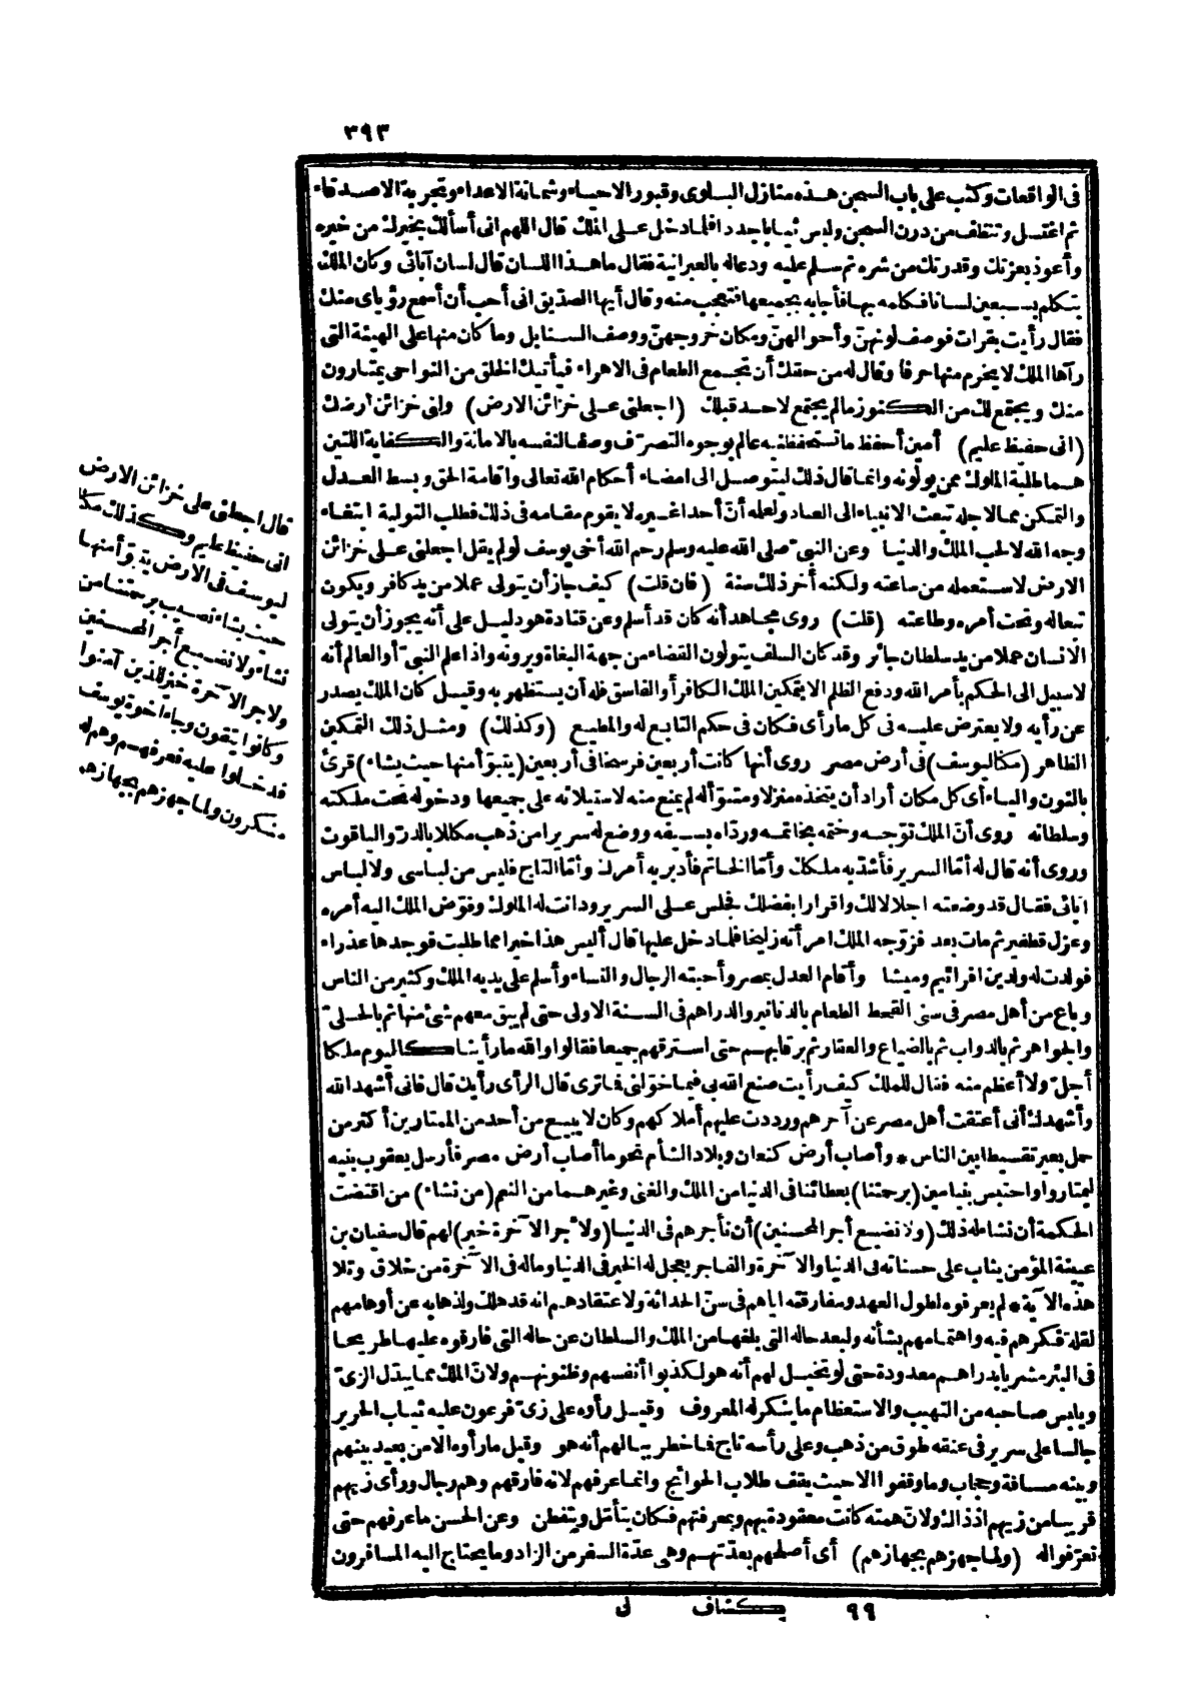 ٣٩٣
فى الواقعات وكتب على باب السجن هذه منازل البلوى وقبور الاحياء وشماتة الاعداء وتجربة الاصدقاء
ثم اغتسل وتنظف من درن السجن ولبس ثيابا جددا فلما دخل على الملك قال اللهم انى أسألك بخيرك من خيره
وأعوذ بعزتك وقدرتك من شره ثم سلم عليه ودعا له بالعبرانية فقال ما هذا اللسان قال لسان آبائى وكان الملك
يتكلم بسبعين لسانا فكلمه بها فأجابه بجميعها فتعجب منه وقال أيها الصديق انى أحب أن أسمع رؤياى منك
فقال رأيت بقرات فوصف لونهنّ وأحوالهنّ ومكان خروجهنّ ووصف السنابل وما كان منها على الهيئة التى
رآها الملك لا يخرم منها حرفا وقال له من حقك أن تجمع الطعام فى الاهراء فيأتيك الخلق من النواحى يمتارون
منك ويجتمع لك من الكنوز مالم يجتمع لاحد قبلك (اجعلنى على خزائن الارض) ولنى خزائن أرضك
(انى حفيظ عليم) أمين أحفظ ما تستحفظنيه عالم بوجوه التصرّف وصفا لنفسه بالامانة والكفاية اللتين
هما طلبة الملوك ممن يولونه وانما قال ذلك ليتوصل الى امضاء أحكام الله تعالى واقامة الحق وبسط العدل
والتمكن مما لاجله تبعث الانبياء الى العباد ولعلمه أنّ أحدا غيره لا يقوم مقامه فى ذلك فطلب التولية ابتغاء
وجه الله لا لحب الملك والدنيا وعن النبىّ صلى الله عليه وسلم رحم الله أخى يوسف لو لم يقل اجعلنى على خزائن
الارض لاستعمله من ساعته ولكنه أخر ذلك سنة (فان قلت) كيف جاز أن يتولى عملا من يد كافر ويكون
تبعا له وتحت أمره وطاعته (قلت) روى مجاهد أنه كان قد أسلم وعن قتادة هو دليل على أنه يجوز أن يتولى
الانسان عملا من يد سلطان جائر وقد كان السلف يتولون القضاء من جهة البغاة ويرونه واذا علم النبىّ أو العالم أنه
لا سبيل الى الحكم بأمر الله ودفع الظلم الا بتمكين الملك الكافر أو الفاسق فله أن يستظهر به وقيل كان الملك يصدر
عن رأيه ولا يعترض عليه فى كل ما رأى فكان فى حكم التابع له والمطيع (وكذلك) ومثل ذلك التمكين
الظاهر (مكنا ليوسف) فى أرض مصر روى أنها كانت أربعين فرسخا فى أربعين (يتبوّأ منها حيث يشاء) قرئ
بالنون والياء أى كل مكان أراد أن يتخذه منزلا ومتبوّأ له لم يمنع منه لاستيلائه على جميعها ودخوله تحت ملكته
وسلطانه روى أنّ الملك توّجه وختمه بخاتمه وردّاه بسيفه ووضع له سريرا من ذهب مكللا بالدرّ والياقوت
وروى أنه قال له أمّا السرير فأشدّ به ملكك وأمّا الخاتم فأدبر به أمرك وأمّا التاج فليس من لباسى ولا لباس
آبائى فقال قد وضعته اجلالا لك واقرارا بفضلك فجلس على السرير ودانت له الملوك وفوّض الملك اليه أمره
وعزل قطفير ثم مات بعد فزوّجه الملك امرأته زليخا فلما دخل عليها قال أليس هذا خيرا مما طلبت فوجدها عذراء
فولدت له ولدين افرائيم وميشا وأقام العدل بمصر وأحبته الرجال والنساء وأسلم على يديه الملك وكثير من الناس
وباع من أهل مصر فى سنى القحط الطعام بالدنانير والدراهم فى السنة الاولى حتى لم يبق معهم شئ منها ثم بالحلىّ
والجواهر ثم بالدواب ثم بالضياع والعقار ثم برقابهم حتى استرقهم جميعا فقالوا والله ما رأينا كاليوم ملكا
أجلّ ولا أعظم منه فقال للملك كيف رأيت صنع الله بى فيما خوّلنى فما ترى قال الرأى رأيك قال فانى أشهد الله
وأشهدك أنى أعتقت أهل مصر عن آخرهم ورددت عليهم أملاكهم وكان لا يبيع من أحد من الممتارين أكثر من
حمل بعير تقسيطا بين الناس * وأصاب أرض كنعان وبلاد الشأم نحو ما أصاب أرض مصر فأرسل يعقوب بنيه
ليمتاروا واحتبس بنيامين (برحمتنا) بعطائنا فى الدنيا من الملك والغنى وغيرهما من النعم (من نشاء) من اقتضت
الحكمة أن نشاء له ذلك (ولا نضيع أجر المحسنين) أن نأجرهم فى الدنيا (ولأجر الآخرة خير) لهم قال سفيان بن
عيينة المؤمن يثاب على حسناته فى الدنيا والآخرة والفاجر يعجل له الخير فى الدنيا وماله فى الآخرة من خلاق وتلا
هذه الآية * لم يعرفوه لطول العهد ومفارقته اياهم فى سنّ الحداثة ولاعتقادهم انه قد هلك ولذهابه عن أوهامهم
لقلة فكرهم فيه واهتمامهم بشأنه ولبعد حاله التى بلغها من الملك والسلطان عن حاله التى فارقوه عليها طريحا
فى البئر مشريا بدراهم معدودة حتى لو تخيل لهم أنه هو لكذبوا أنفسهم وظنونهم ولانّ الملك مما يبدّل الزىّ
ويلبس صاحبه من التهيب والاستعظام ما ينكر له المعروف وقيل رأوه على زىّ فرعون عليه ثياب الحرير
جالسا على سرير فى عنقه طوق من ذهب وعلى رأسه تاج فما خطر ببالهم أنه هو وقيل ما رأوه الا من بعيد بينهم
وبينه مسافة وحجاب وما وقفوا الا حيث يقف طلاب الحوائج وانما عرفهم لانه فارقهم وهم رجال ورأى زيهم
قريبا من زيهم اذ ذاك ولانّ همته كانت معقودة بهم وبمعرفتهم فكان يتأمّل ويتفطن وعن الحسن ما عرفهم حتى
تعرّفوا له (ولما جهزهم بجهازهم) أى أصلحهم بعدّتهم وهى عدّة السفر من الزاد وما يحتاج اليه المسافرون
٩٩ كشاف ل
قال اجعلنى على خزائن الارض
انى حفيظ عليم وكذلك مكنا
ليوسف فى الارض يتبوّأ منها
حيث يشاء نصيب برحمتنا من
نشاء ولا نضيع أجر المحسنين
ولأجر الآخرة خير للذين آمنوا
وكانوا يتقون وجاء اخوة يوسف
فدخلوا عليه فعرفهم وهم له
منكرون ولما جهزهم بجهازهم